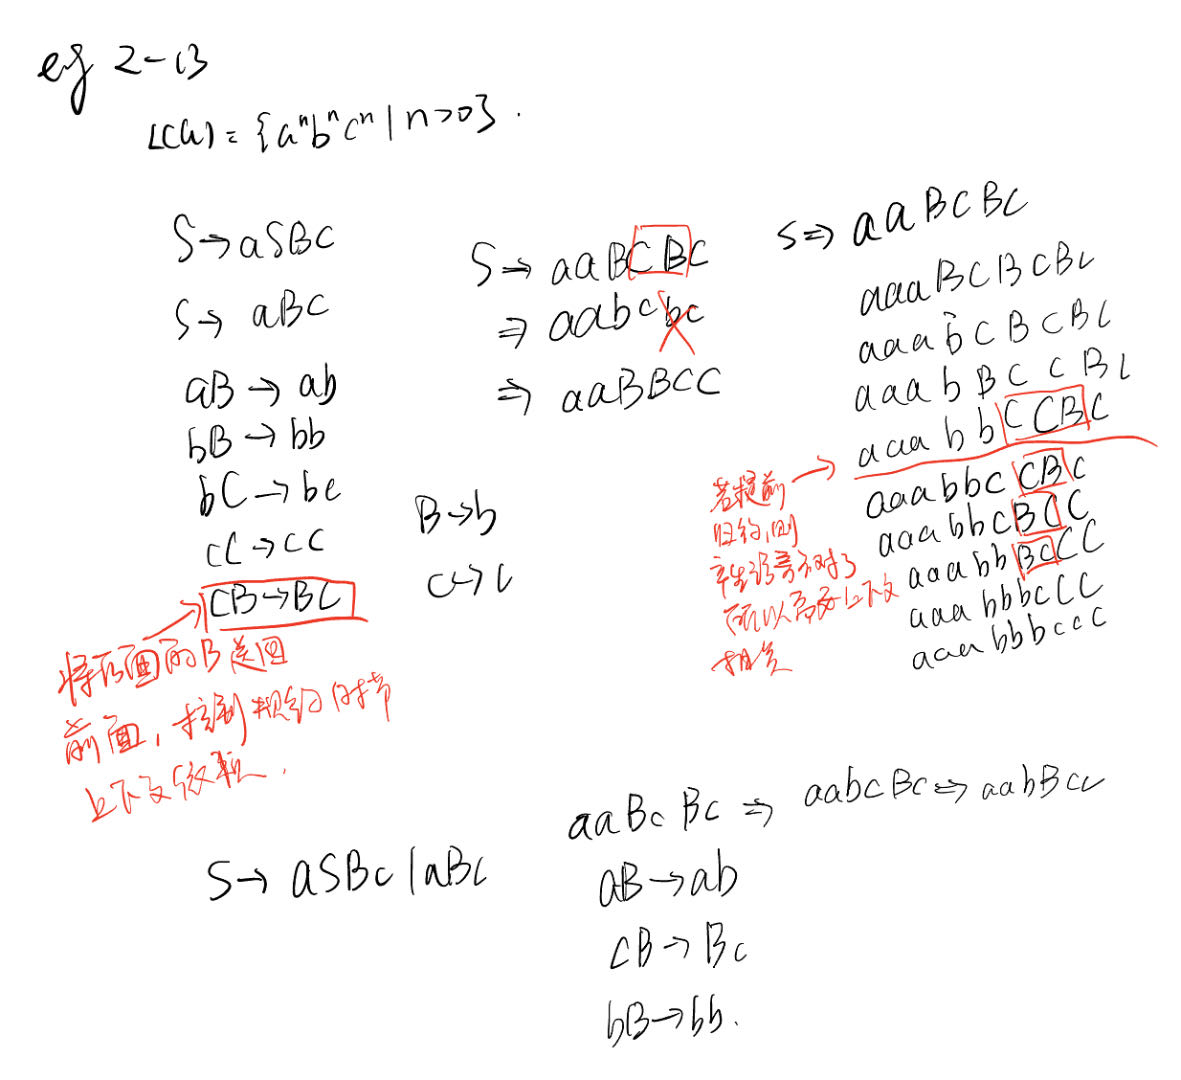 eg 2-13
L(G) = {aⁿbⁿcⁿ | n>0}.
S→aSBC
S→aBC
aB→ab
bB→bb
bC→bc
cC→cc
CB→BC
将后面的B送回
前面，控制规约时节
上下文
B→b
C→c
S⇒aaBCBC
⇒aabcbc
⇒aaBBCC
S⇒aaBCBC
aaaBCBCBC
aaabCBCBC
aaabBCCBC
aaabbCCBC
aaabbcCBC
aaabbcBCC
aaabbBcCC
aaabbbcCC
aaabbbccc
若提前
归约,则
产生语言不对了
所以需要上下文
相关
S→aSBc|aBc
aaBcBc⇒aabcBc⇒aabBcc
aB→ab
cB→Bc
bB→bb.